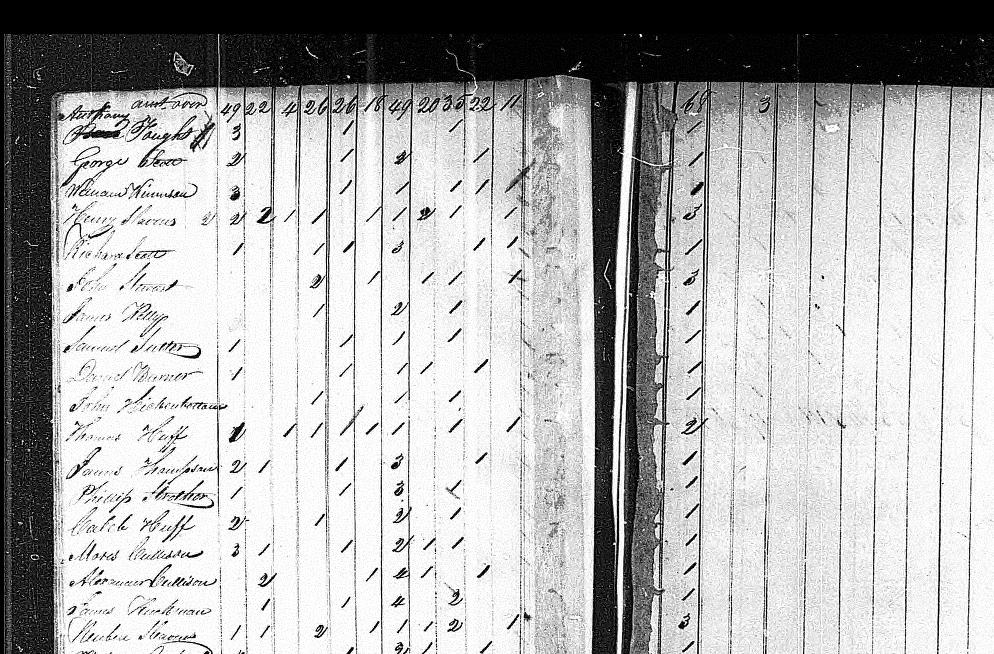 amt over 49 22 4 26 26 18 49 20 35 22 11 68 3
Anthony
3 1 1 1
George Scott 2 1 2 1 1
William 3 1 1 1 1 1
Henry 2 2 2 1 1 1 1 2 1 1 3
Richard Scott 1 1 1 3 1 1 1
John Stewart 2 1 1 1 1 3
James 1 2 1 1
Samuel 1 1 1 1 1
David Burner 1 1 1 1 1 1
John 1 1 1 1
Thomas Huff 1 1 1 1 1 1 1 1 2
James Thompson 2 1 1 3 1 1
Phillip Strother 1 1 3 1 1
Caleb Huff 2 1 2 1 1
Moses Cullison 3 1 1 2 1 1 1
Alexander Cullison 2 1 2 1 1 1
James Huckman 1 1 4 2 1
Reuben 1 1 2 1 1 1 2 1 3